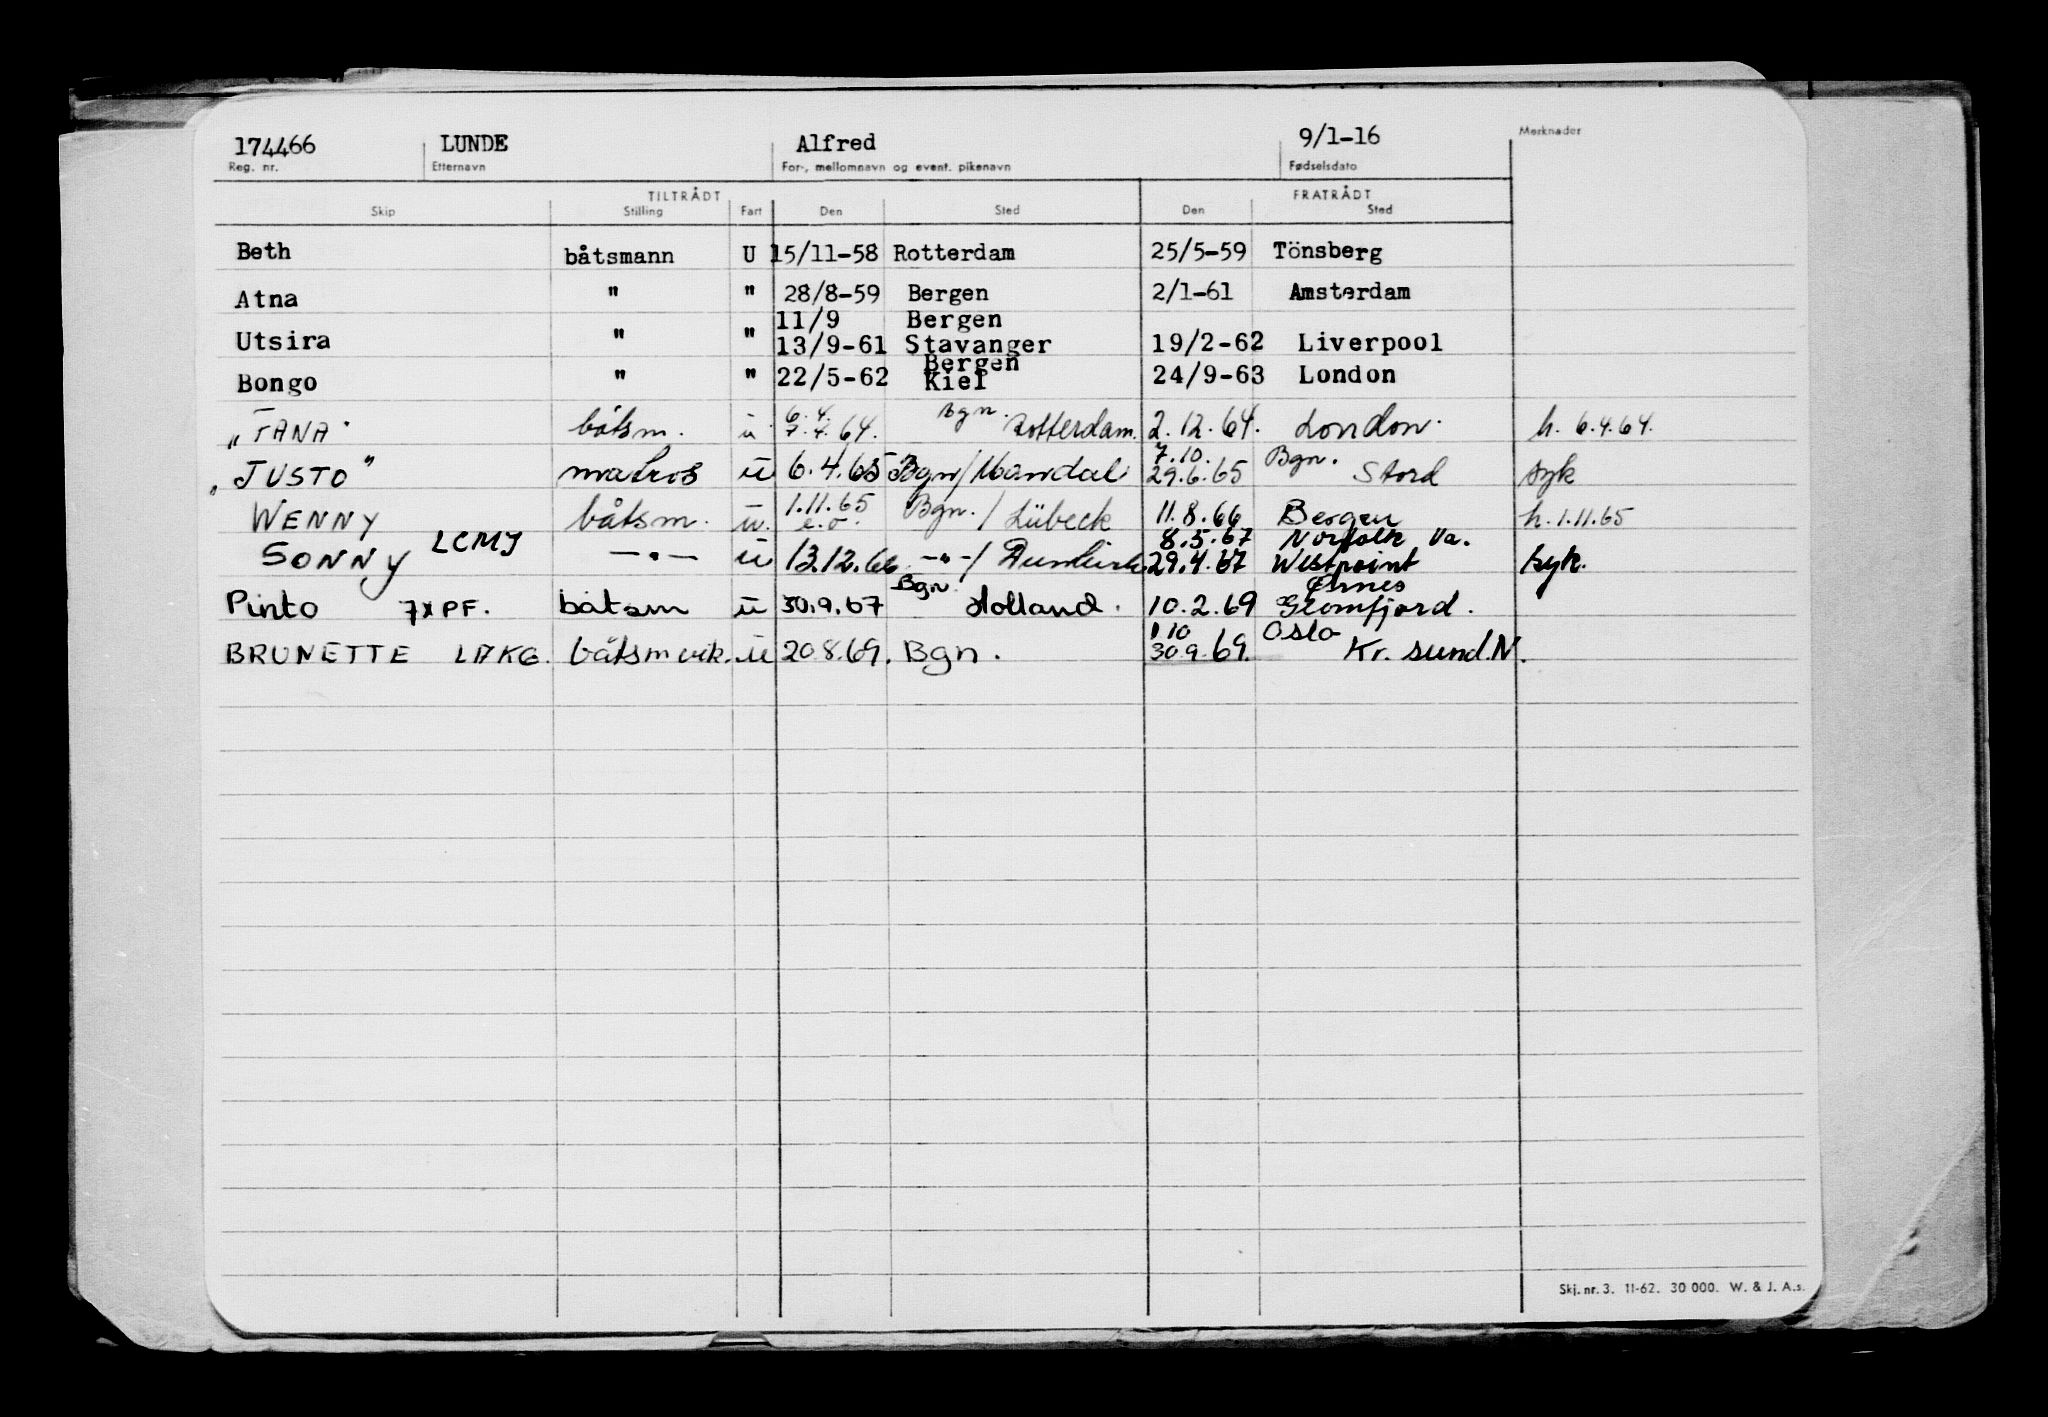 174466 LUNDE Alfred 9/1-16 Merknader
Reg. nr. Etternavn For-, mellomnavn og event. pikenavn Fødselsdato
TILTRÅDT FRATRÅDT
Skip Stilling Fart Den Sted Den Sted
Beth båtsmann U 15/11-58 Rotterdam 25/5-59 Tönsberg
Atna " " 28/8-59 Bergen 2/1-61 Amsterdam
11/9 Bergen
Utsira " " 13/9-61 Stavanger 19/2-62 Liverpool
Bergen
Bongo " " 22/5-62 Kiel 24/9-63 London
6.4. Bgn.
"TANA" båtsm. u 7.4.64. Rotterdam. 2.12.64. London. h. 6.4.64.
7.10. Bgn.
"JUSTO" matros u 6.4.65 Bgn/Mandal 29.6.65 Stord syk
1.11.65
WENNY båtsm. u. e.o. Bgn./Lübeck 11.8.66 Bergen h. 1.11.65
LCMJ 8.5.67 Norfolk Va.
SONNY —"— u 13.12.66 —"—/ 29.4.67 Westpoint syk.
Bgn. Ørnes
Pinto 7xPF. båtsm u 30.9.67 Holland. 10.2.69 Glomfjord.
1 10 Oslo
BRUNETTE LAKG. båtsm vik. u 20.8.69. Bgn. 30.9.69. Kr. sund.N.
Skj. nr. 3. 11-62. 30 000. W. & J. A.s.